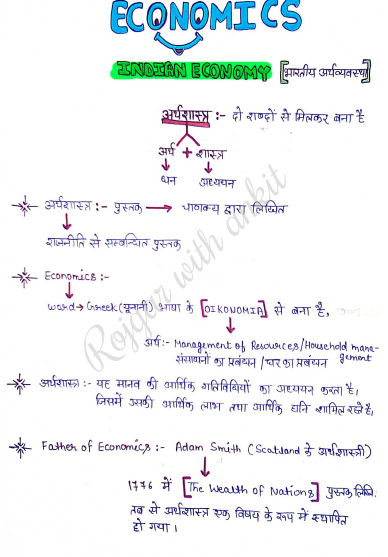 ECONOMICS
INDIAN ECONOMY [भारतीय अर्थव्यवस्था]
अर्थशास्त्र :- दो शब्दों से मिलकर बना है
अर्थ + शास्त्र
धन अध्ययन
अर्थशास्त्र :- पुस्तक → चाणक्य द्वारा लिखित
राजनीति से सम्बन्धित पुस्तक
Economics :-
word → Greek (यूनानी) भाषा के [OIKONOMIA] से बना है,
अर्थ :- Management of Resources/Household mana-
gement
संसाधनों का प्रबंधन / घर का प्रबंधन
अर्थशास्त्र :- यह मानव की आर्थिक गतिविधियों का अध्ययन करता है,
जिसमें उसकी आर्थिक लाभ तथा आर्थिक हानि शामिल रहते है,
Father of Economics :- Adam Smith (Scotland के अर्थशास्त्री)
1776 में [The Wealth of Nations] पुस्तक लिखि.
तब से अर्थशास्त्र एक विषय के रूप में स्थापित
हो गया।
Rojgar with ankit